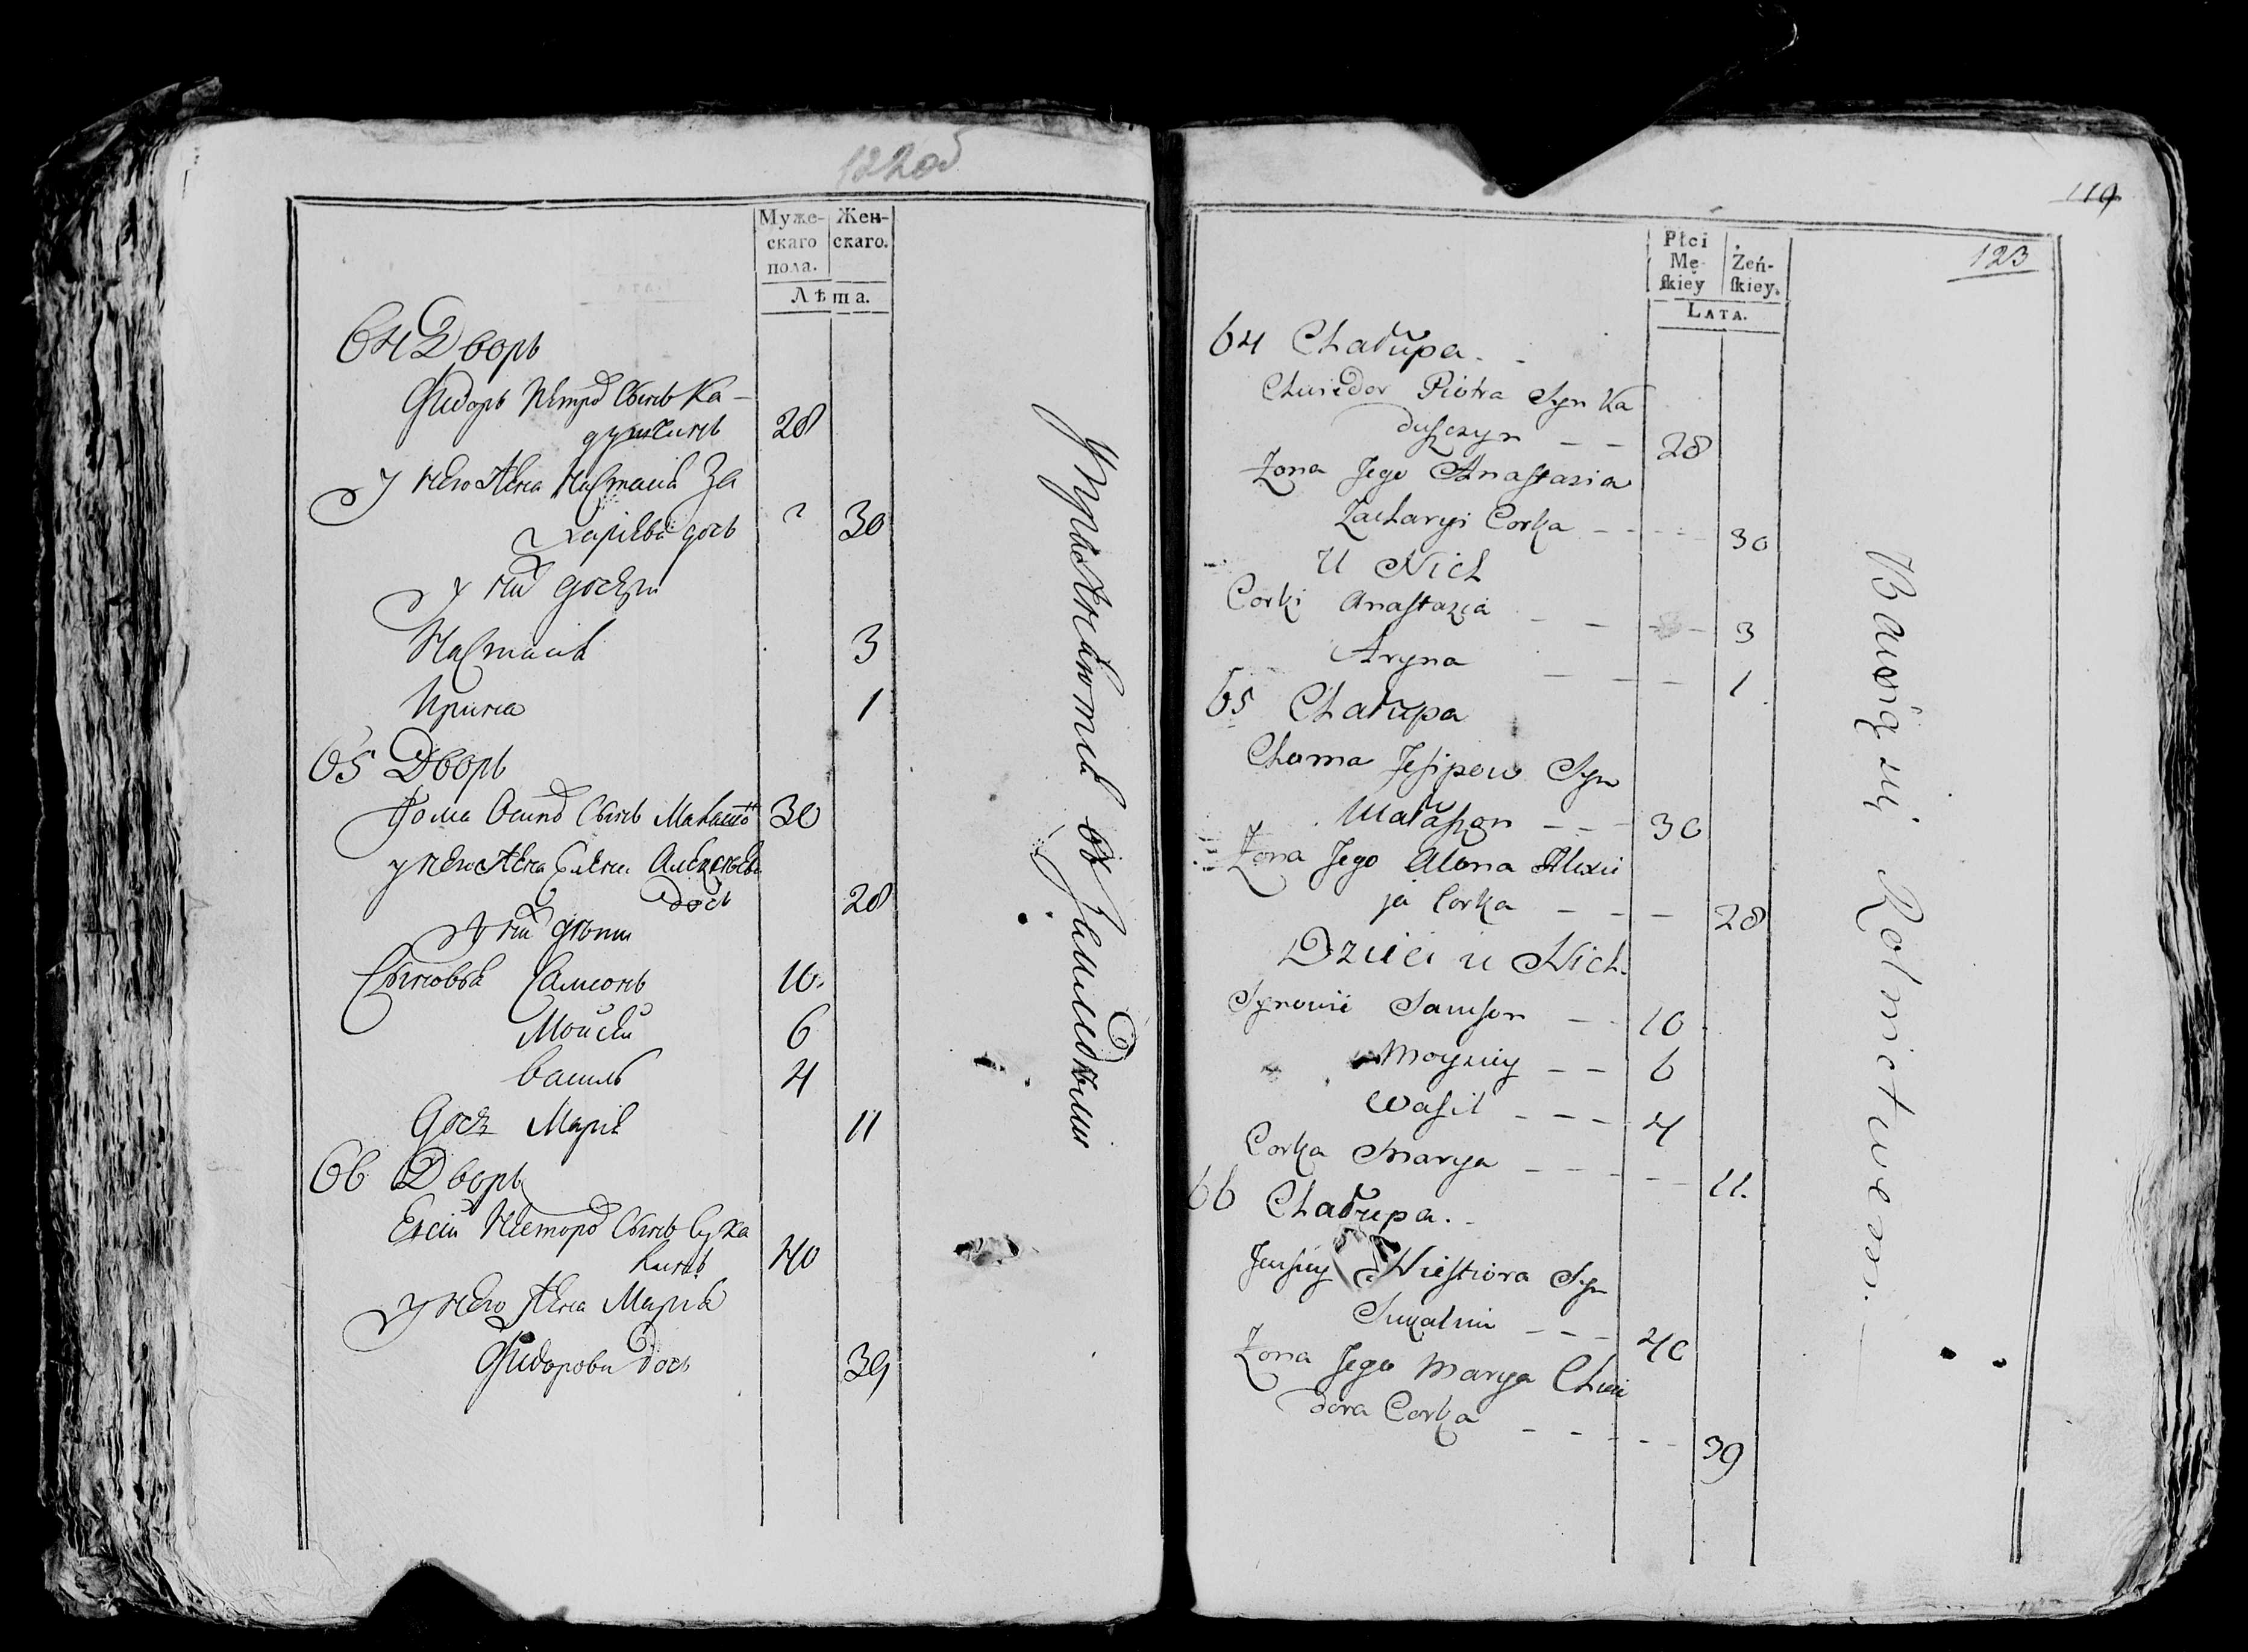 122об
Муже- Жен-
скаго скаго.
пола.
Лѣта.
64 Дворъ
Фидоръ Петров Сынъ Ка-
душкинъ 28
у него Жена Настасія За
харіева дочь 30
у них дочери
Настасія 3
Ирина 1
65 Дворъ
Фома Осипов Сынъ 30
у него Жена Елена Алексеева
дочь 28
у них дети
Сыновья Самсонъ 10.
Мойсей 6
Василь 4
Дочь Марія 11
66 Дворъ
Евсій Несторов Сынъ Суха
40
у него Жена Марія
Фидорова дочь 39
Упражняются въ Земледелии
119
123
Płci
Mę- Żeń-
skiey skiey.
LATA.
64 Chałupa.
Chwiedor Piotra Syn Ka
duszczyn 28
Żona Jego Anastazia
Zacharyi Corka 30
U Nich
Corki Anastazia 3
Aryna 1
65 Chałupa
Choma Jesipow Syn
30
Żona Jego Alona Alexie
ja Corka 28
Dzieci u Nich.
Synowie Samson 10
Moyziey 6
Wasil 4
Corka Marya 11.
66 Chałupa.
Jewsiey Niestiora Syn
40
Żona Jego Marya Chwie
dora Corka 39
Bawią się Rolnictwem.